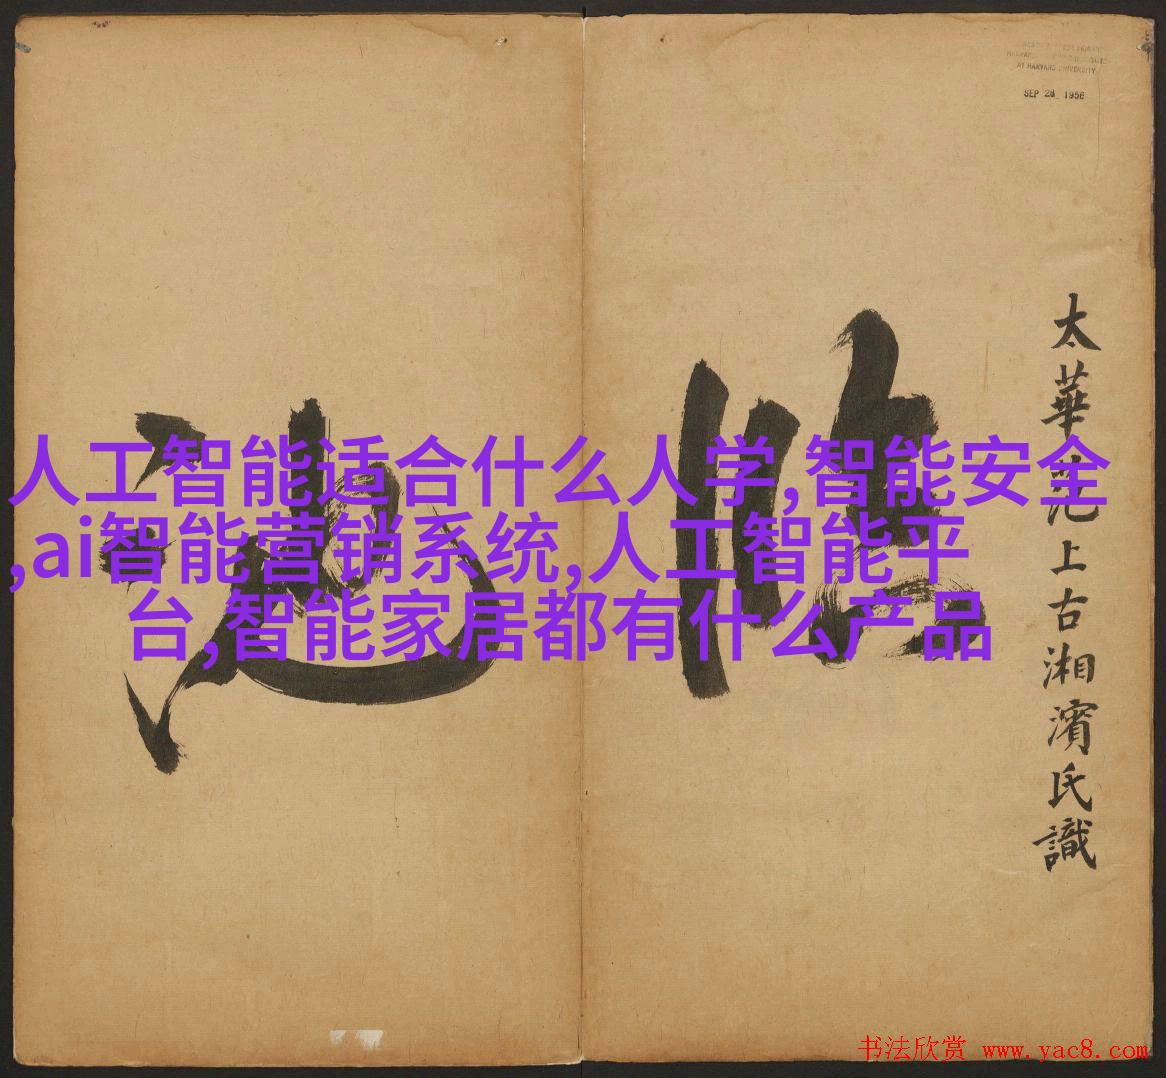 SEP 28 1956
AT HARVARD UNIVERSITY
臨池
太華範上古湘濱氏識
人工智能适合什么人学,智能安全
,ai智能营销系统,人工智能平
台,智能家居都有什么产品
书法欣赏 www.yac8.com